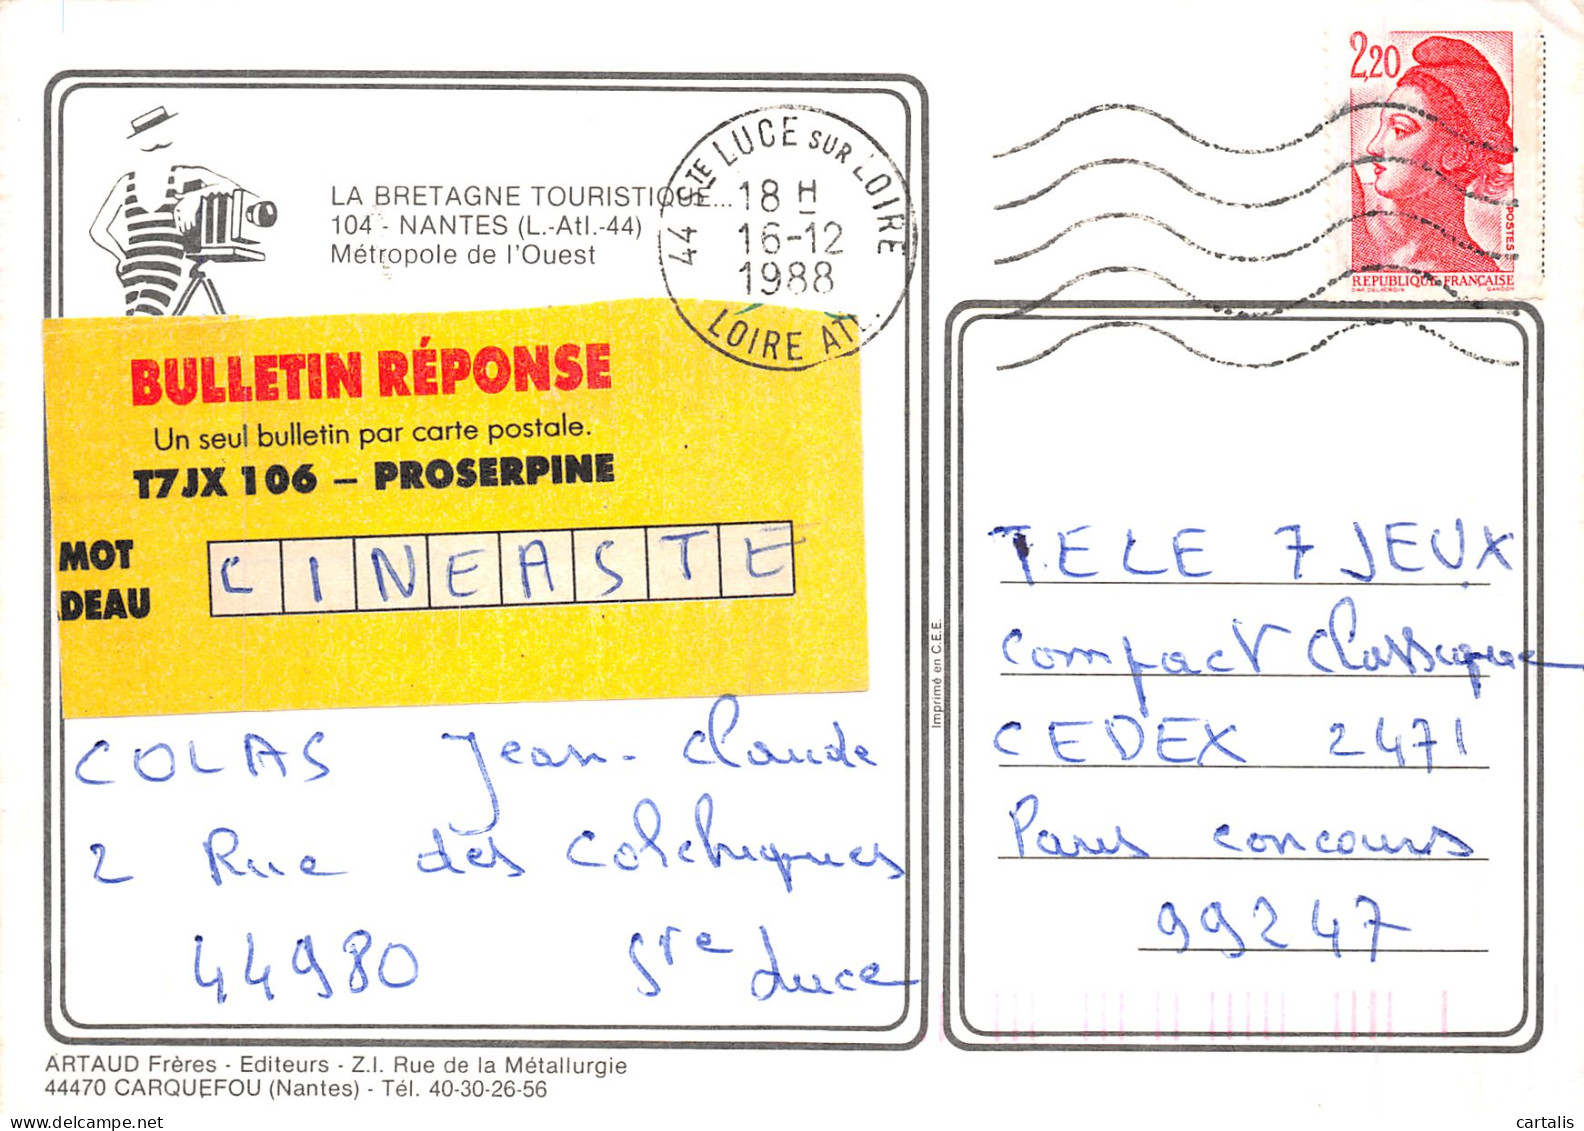 LA BRETAGNE TOURISTIQUE...
104 - NANTES (L.-Atl.-44)
Métropole de l'Ouest
44 STE LUCE SUR LOIRE
18 H
16-12
1988
LOIRE ATL.
2,20
POSTES
REPUBLIQUE FRANÇAISE
D'AP. DELACROIX GANDON
BULLETIN RÉPONSE
Un seul bulletin par carte postale.
T7JX 106 – PROSERPINE
MOT
DEAU
CINEASTE
COLAS Jean-Claude
2 Rue des Colchiques
44980 Ste Luce
Imprimé en C.E.E.
TELE 7 JEUX
Compact Classique
CEDEX 2471
Paris concours
99247
ARTAUD Frères - Editeurs - Z.I. Rue de la Métallurgie
44470 CARQUEFOU (Nantes) - Tél. 40-30-26-56
cartalis